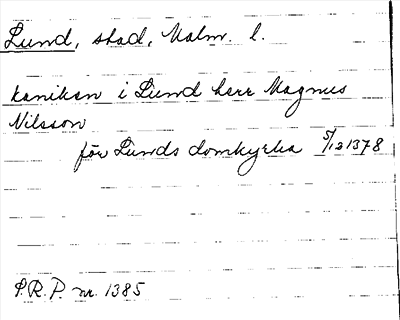 Lund, stad, Malm. l.
kaniken i Lund herr Magnus
Nilsson
för Lunds domkyrka 5/12 1378
S.R.P. nr. 1385